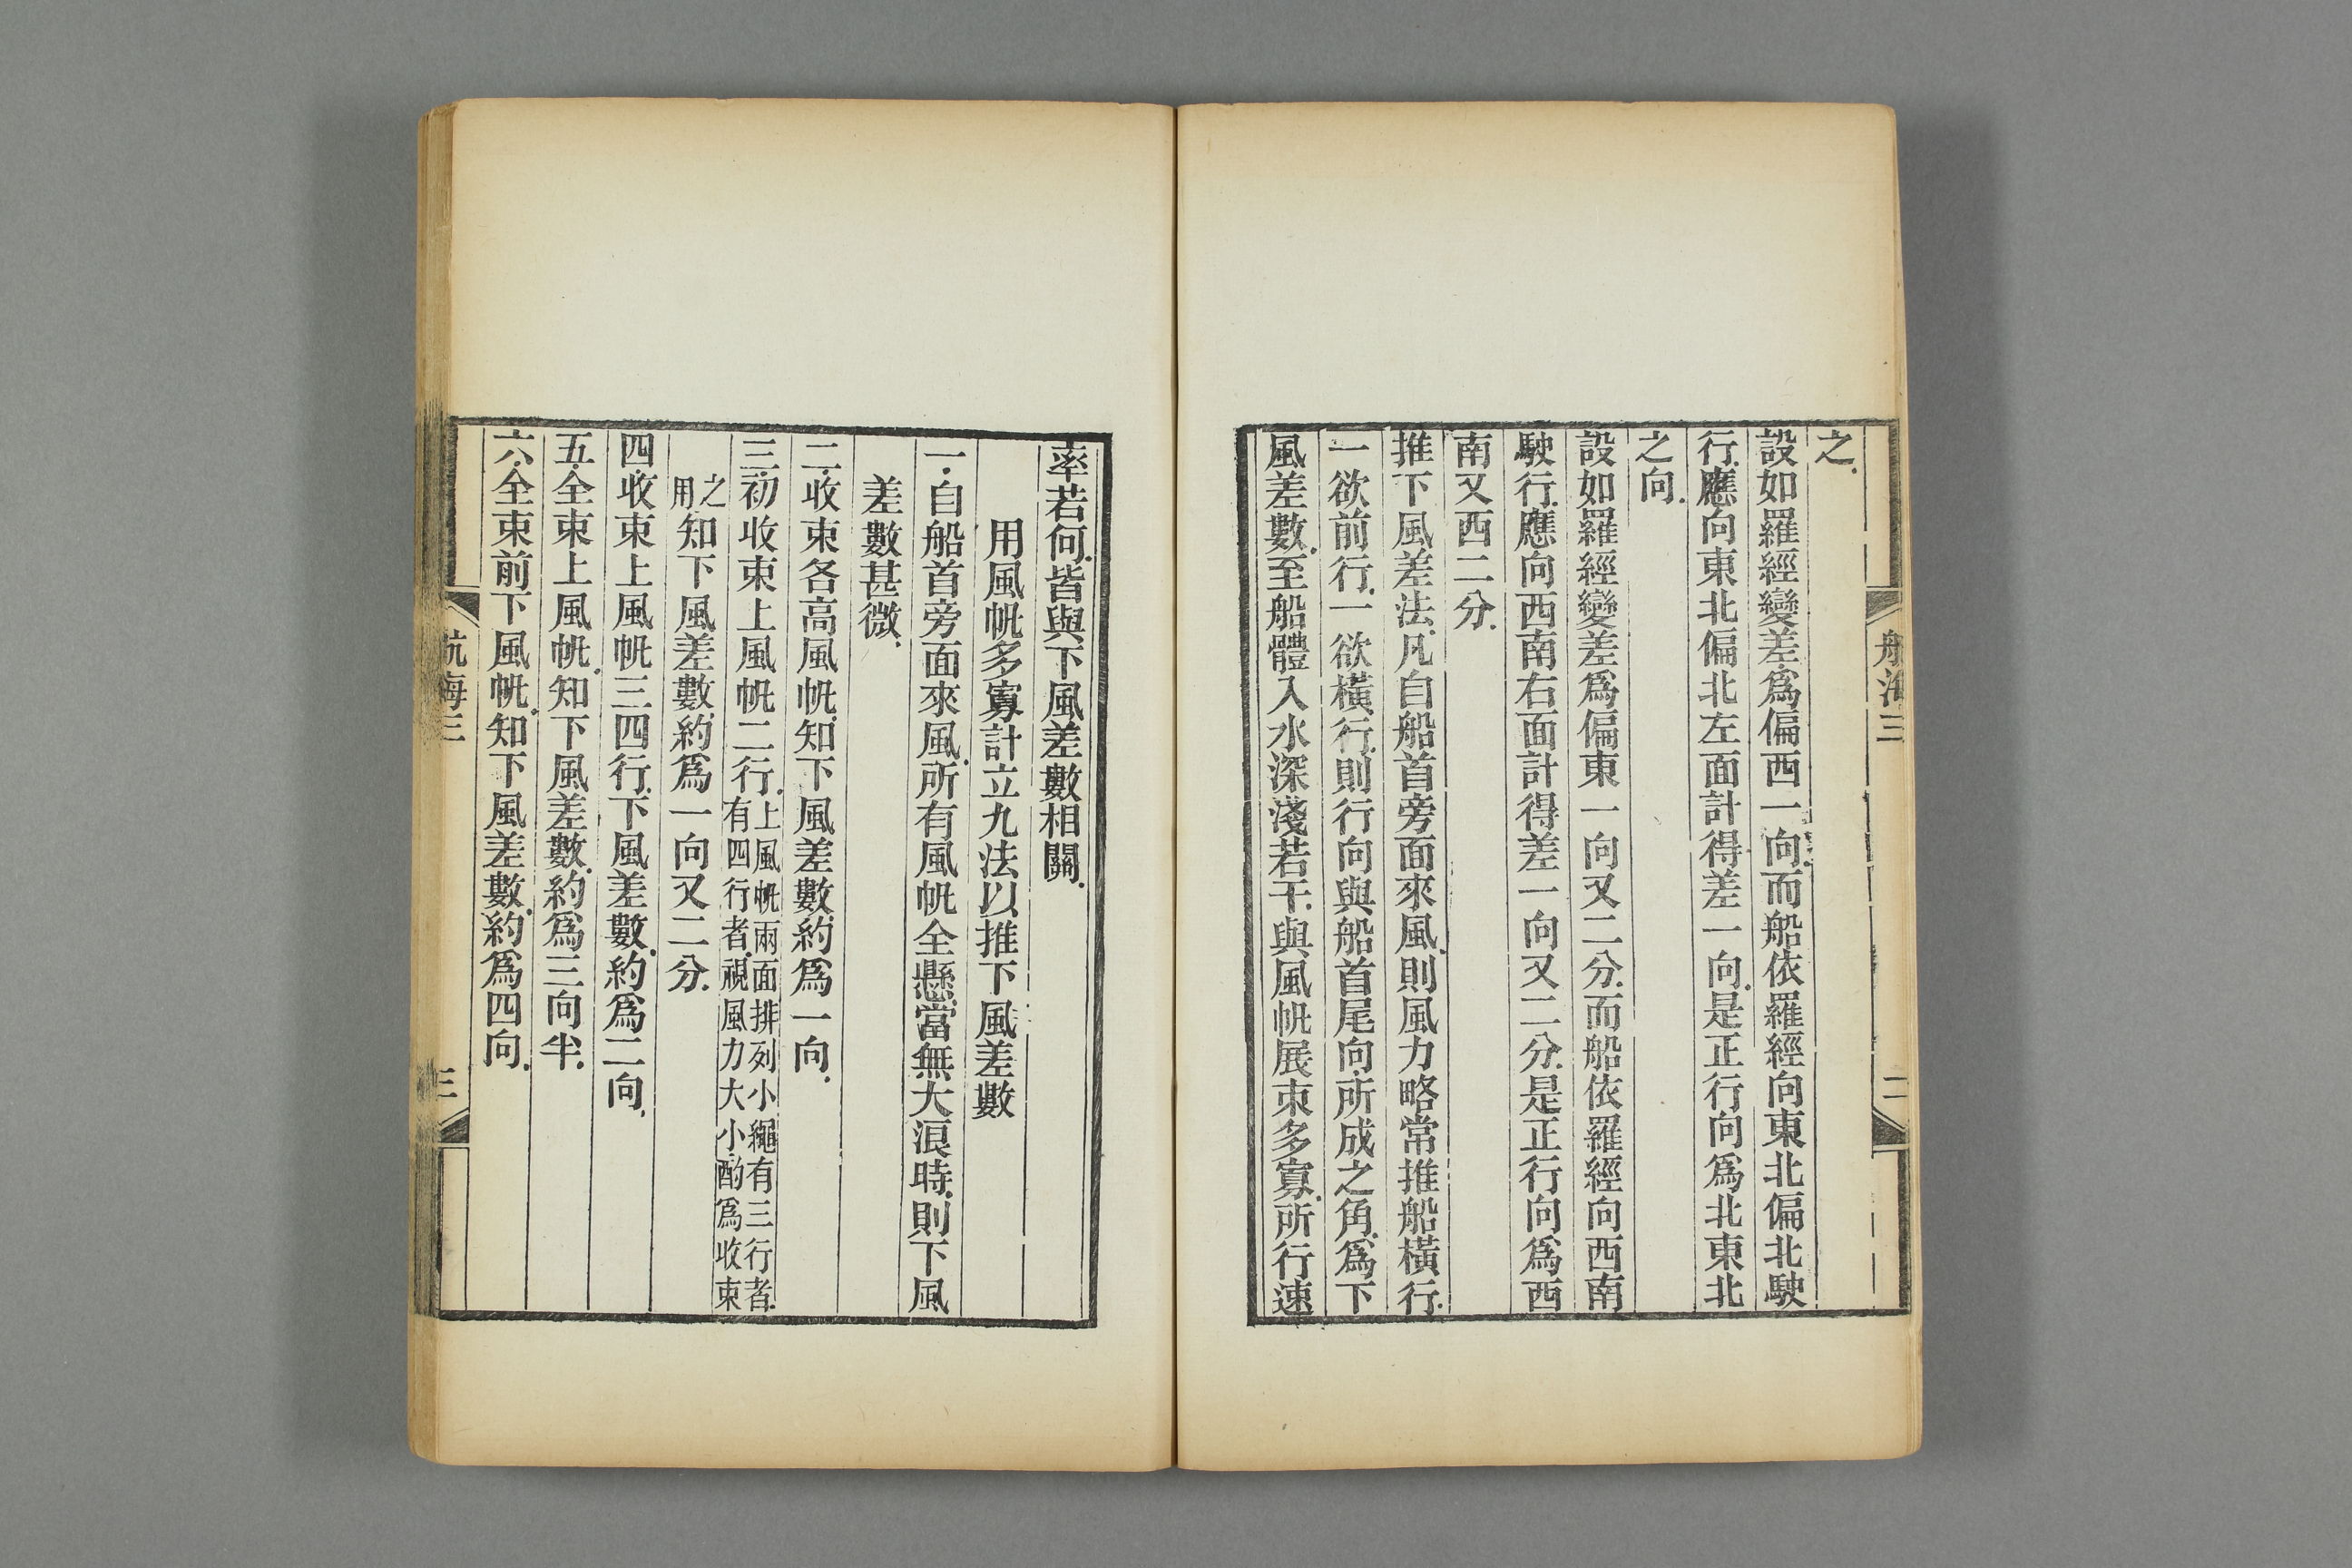 航海三
二
之.
設如羅經變差.爲偏西一向.而船依羅經向東北偏北駛
行.應向東北偏北左面計得差一向.是正行向爲北東北
之向.
設如羅經變差爲偏東一向又二分.而船依羅經向西南
駛行.應向西南右面計得差一向又二分.是正行向爲西
南又西二分.
推下風差法.凡自船首旁面來風.則風力略常推船橫行.
一欲前行.一欲橫行.則行向與船首尾向.所成之角.爲下
風差數.至船體入水深淺若干.與風帆展束多寡.所行速
率若何.皆與下風差數相關.
用風帆多寡計立九法以推下風差數
一.自船首旁面來風.所有風帆全懸.當無大浪時.則下風
差數甚微.
二.收束各高風帆.知下風差數.約爲一向.
三.初收束上風帆二行.上風帆兩面排列小繩有三行者.有四行者.視風力大小.酌爲收束
之用知下風差數.約爲一向又二分.
四.收束上風帆三四行.下風差數.約爲二向.
五.全束上風帆.知下風差數.約爲三向半.
六.全束前下風帆.知下風差數.約爲四向.
航海三
三